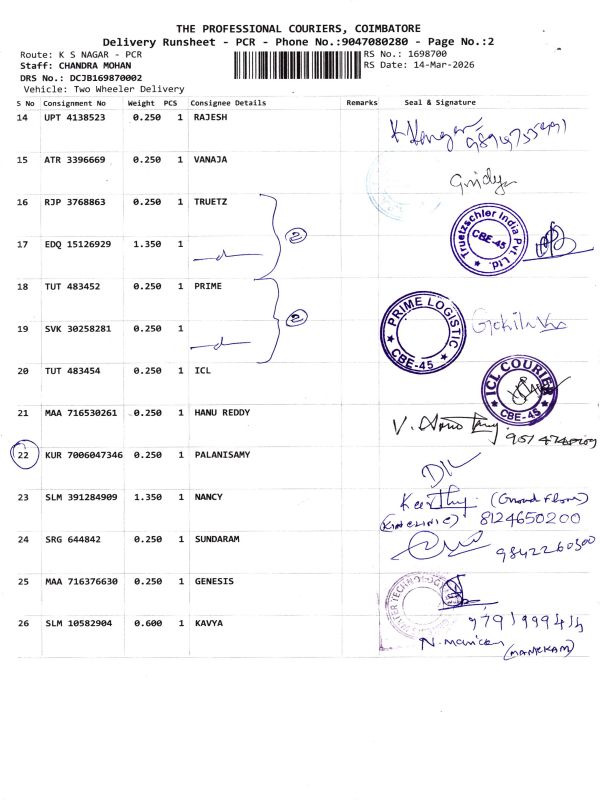 THE PROFESSIONAL COURIERS, COIMBATORE
Delivery Runsheet - PCR - Phone No.:9047080280 - Page No.:2
Route: K S NAGAR - PCR RS No.: 1698700
Staff: CHANDRA MOHAN RS Date: 14-Mar-2026
DRS No.: DCJB169870002
Vehicle: Two Wheeler Delivery
S No Consignment No Weight PCS Consignee Details Remarks Seal & Signature
14 UPT 4138523 0.250 1 RAJESH
15 ATR 3396669 0.250 1 VANAJA
16 RJP 3768863 0.250 1 TRUETZ
Truetzschler India Pvt. Ltd. CBE-45
17 EDQ 15126929 1.350 1
2
18 TUT 483452 0.250 1 PRIME
PRIME LOGISTIC CBE-45
19 SVK 30258281 0.250 1
2
20 TUT 483454 0.250 1 ICL
ICL COURIER CBE-45
21 MAA 716530261 0.250 1 HANU REDDY
22 KUR 7006047346 0.250 1 PALANISAMY
23 SLM 391284909 1.350 1 NANCY Keerthy (Ground Floor)
8124650200
24 SRG 644842 0.250 1 SUNDARAM
9842260300
25 MAA 716376630 0.250 1 GENESIS
TECHNOLOG
26 SLM 10582904 0.600 1 KAVYA
N. Manickam
(MANICKAM)